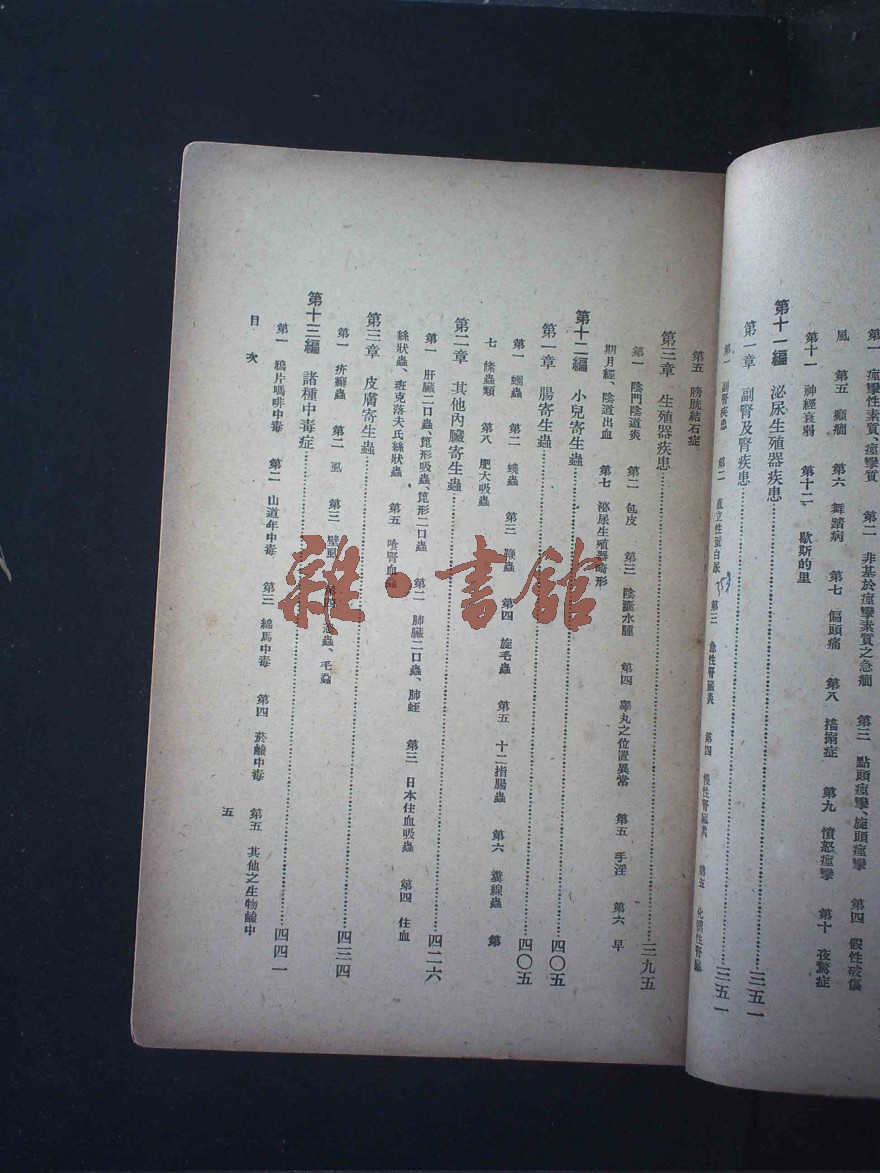 第一 痙攣性素質、痙攣質 第二 非基於痙攣素質之急癇 第三 點頭痙攣、旋頭痙攣 第四 假性破傷
風 第五 癲癇 第六 舞蹈病 第七 偏頭痛 第八 搖搦症 第九 憤怒痙攣 第十 夜驚症
第十一 神經衰弱 第十二 歇斯的里
第十一編 泌尿生殖器疾患 三五一
第一章 副腎及腎疾患 三五一
第一 副腎疾患 第二 直立性蛋白尿 第三 急性腎臟炎 第四 慢性腎臟炎 第五 化膿性腎臟
第五 膀胱結石症
第三章 生殖器疾患 三九五
第一 陰門陰道炎 第二 包皮 第三 陰囊水腫 第四 睾丸之位置異常 第五 手淫 第六 早
期月經、陰道出血 第七 泌尿生殖器畸形
第十二編 小兒寄生蟲 四〇五
第一章 腸寄生蟲 四〇五
第一 蛔蟲 第二 蟯蟲 第三 鞭蟲 第四 旋毛蟲 第五 十二指腸蟲 第六 糞線蟲 第
七 條蟲類 第八 肥大吸蟲
第二章 其他內臟寄生蟲 四二六
第一 肝臟二口蟲、箆形吸蟲、箆形二口蟲 第二 肺臟二口蟲、肺蛭 第三 日本住血吸蟲 第四 住血
絲狀蟲、班克落夫氏絲狀蟲 第五 喰腎血蟲
第三章 皮膚寄生蟲 四三四
第一 疥癬蟲 第二 虱 第三 壁虱 第四 恙蟲、毛蝨
第十三編 諸種中毒症 四四一
第一 鴉片嗎啡中毒 第二 山道年中毒 第三 綿馬中毒 第四 菸鹼中毒 第五 其他之生物鹼中
目次
五
雜·書館